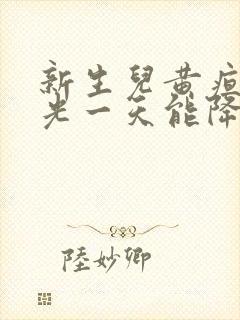 新生兒黃疸
光一天能降
陸妙卿